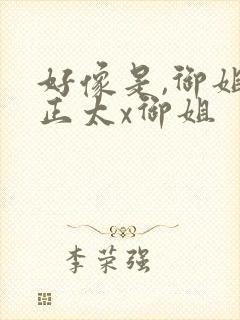 好像是,御姐
正太x御姐
李荣强